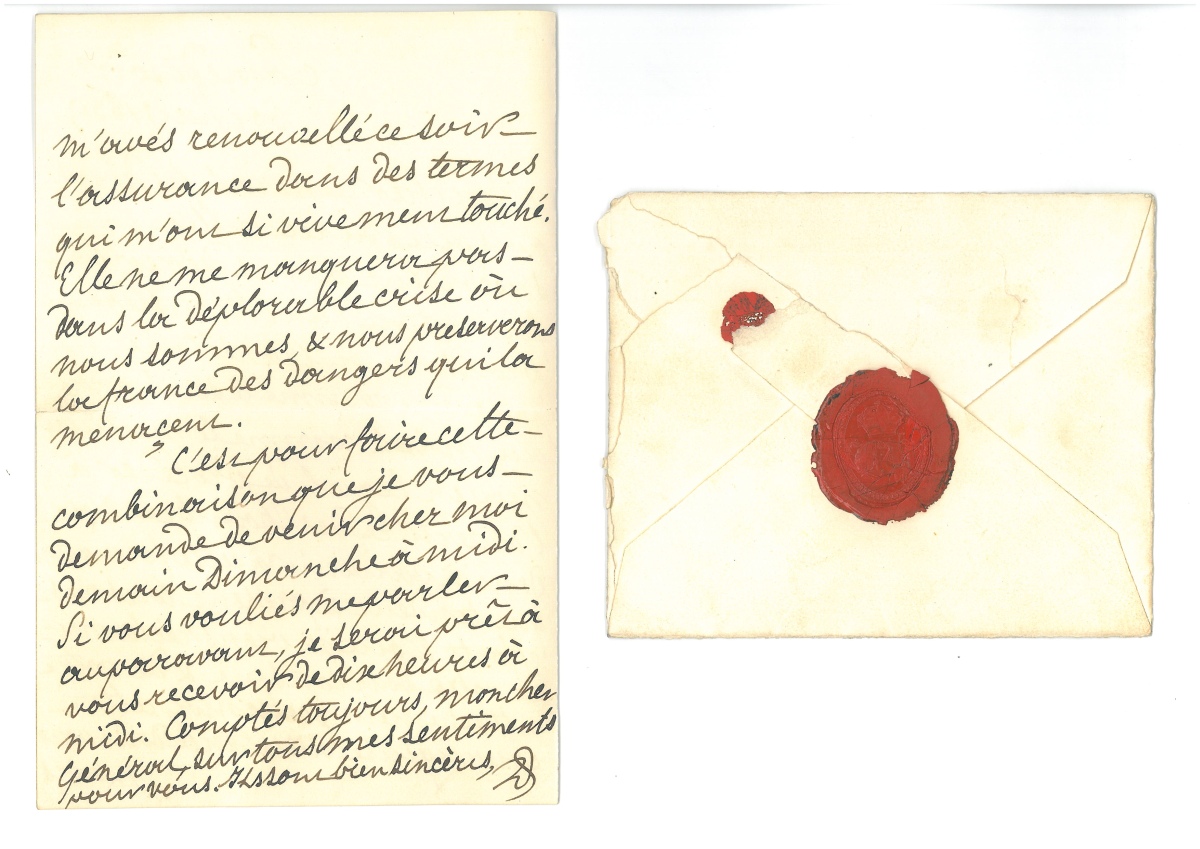 m'avés renouvellé ce soir
l'assurance dans des termes
qui m'ont si vivement touché.
Elle ne me manquera pas
dans la déplorable crise où
nous sommes, & nous preserverons
la france des dangers qui la
menacent.
C'est pour faire cette
combinaison que je vous
demande de venir chez moi
demain Dimanche à midi.
Si vous vouliés me parler
auparavant, je serai prêt à
vous recevoir de dix heures à
midi. Comptés toujours, mon cher
Général, sur tous mes sentiments
pour vous. Ils sont bien sincères,